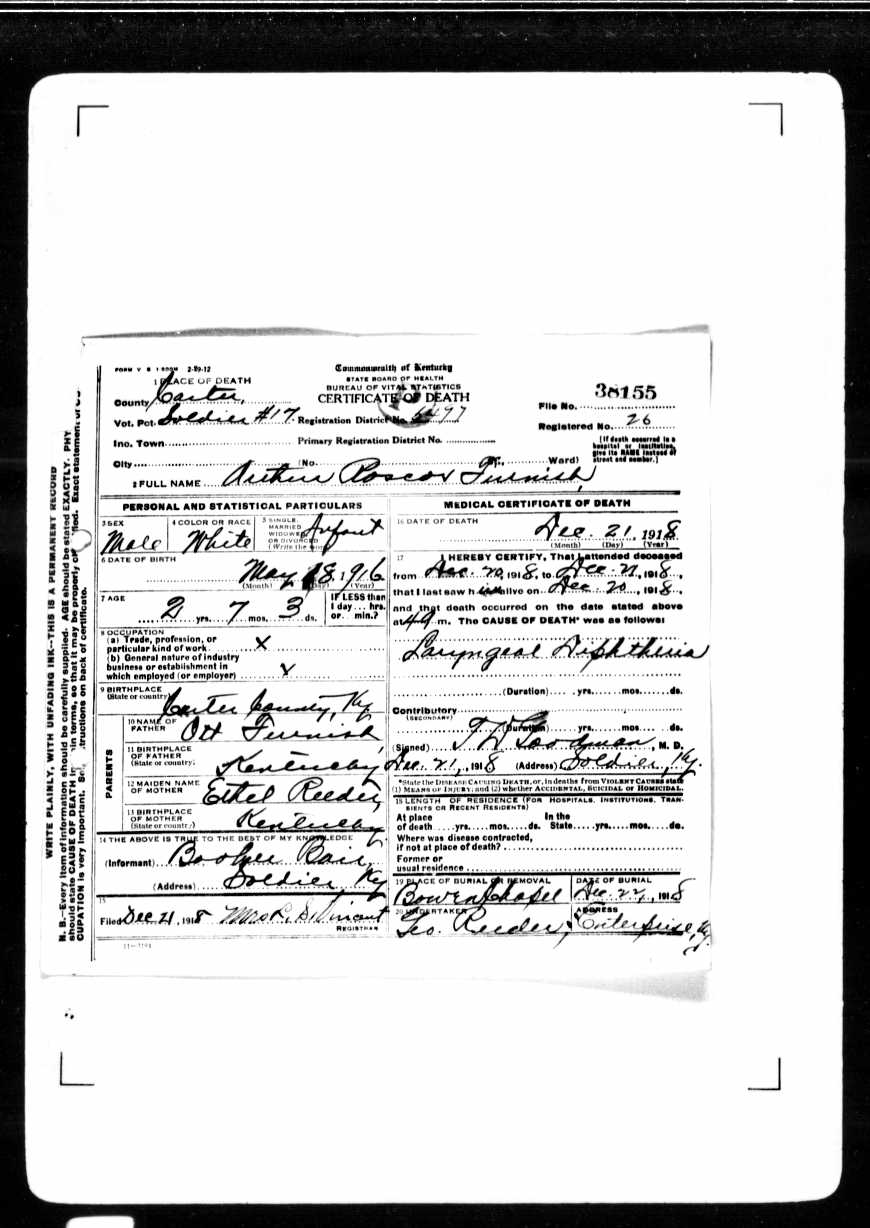 FORM V. S. 1 500M 2-29-12
Commonwealth of Kentucky
STATE BOARD OF HEALTH
BUREAU OF VITAL STATISTICS
CERTIFICATE OF DEATH
1 PLACE OF DEATH
County Carter,
Vot. Pct. Soldier #17. Registration District No. 5497
Inc. Town Primary Registration District No.
City (No. St., Ward)
File No. 38155
Registered No. 26
[If death occurred in a
hospital or institution,
give its NAME instead of
street and number.]
2 FULL NAME Arthur Roscoe Furnish,
PERSONAL AND STATISTICAL PARTICULARS
3 SEX
Male
4 COLOR OR RACE
White
5 SINGLE,
MARRIED
WIDOWED
OR DIVORCED
(Write the word)
Infant
6 DATE OF BIRTH
May 18 1916
(Month) (Day) (Year)
7 AGE
2 yrs. 7 mos. 3 ds.
IF LESS than
1 day... hrs.
or... min.?
8 OCCUPATION
(a) Trade, profession, or
particular kind of work x
(b) General nature of industry
business or establishment in
which employed (or employer) x
9 BIRTHPLACE
(State or country)
Carter County, Ky
PARENTS
10 NAME OF
FATHER
Ott Furnish,
11 BIRTHPLACE
OF FATHER
(State or country)
Kentucky
12 MAIDEN NAME
OF MOTHER
Ethel Reeder,
13 BIRTHPLACE
OF MOTHER
(State or country)
Kentucky
14 THE ABOVE IS TRUE TO THE BEST OF MY KNOWLEDGE
(Informant) Booker Rair,
(Address) Soldier, Ky
15
Filed Dec 21, 1918 Mrs L. S. Vincent
REGISTRAR
11-3191
MEDICAL CERTIFICATE OF DEATH
16 DATE OF DEATH
Dec. 21, 1918
(Month) (Day) (Year)
17 I HEREBY CERTIFY, That I attended deceased
from Dec. 20, 1918, to Dec. 21, 1918,
that I last saw him alive on Dec. 20, 1918,
and that death occurred on the date stated above
at m. The CAUSE OF DEATH* was as follows:
Laryngeal Diphtheria
(Duration) yrs. mos. ds.
Contributory
(SECONDARY)
(Duration) yrs. mos. ds.
(Signed) T W Goodman, M. D.
Dec. 21, 1918 (Address) Soldier, Ky.
*State the DISEASE CAUSING DEATH, or, in deaths from VIOLENT CAUSES state
(1) MEANS OF INJURY; and (2) whether ACCIDENTAL, SUICIDAL OR HOMICIDAL.
18 LENGTH OF RESIDENCE (FOR HOSPITALS, INSTITUTIONS, TRAN-
SIENTS OR RECENT RESIDENTS)
At place In the
of death yrs. mos. ds. State yrs. mos. ds.
Where was disease contracted,
if not at place of death?
Former or
usual residence
19 PLACE OF BURIAL OR REMOVAL
Bowen Chapel
DATE OF BURIAL
Dec. 22, 1918
20 UNDERTAKER
Geo. Reeder,
ADDRESS
Enterprise, Ky.
WRITE PLAINLY, WITH UNFADING INK--THIS IS A PERMANENT RECORD
N. B.--Every item of information should be carefully supplied. AGE should be stated EXACTLY. PHY
should state CAUSE OF DEATH in terms, so that it may be properly fied. Exact statement of OC
CUPATION is very important. See tructions on back of certificate.